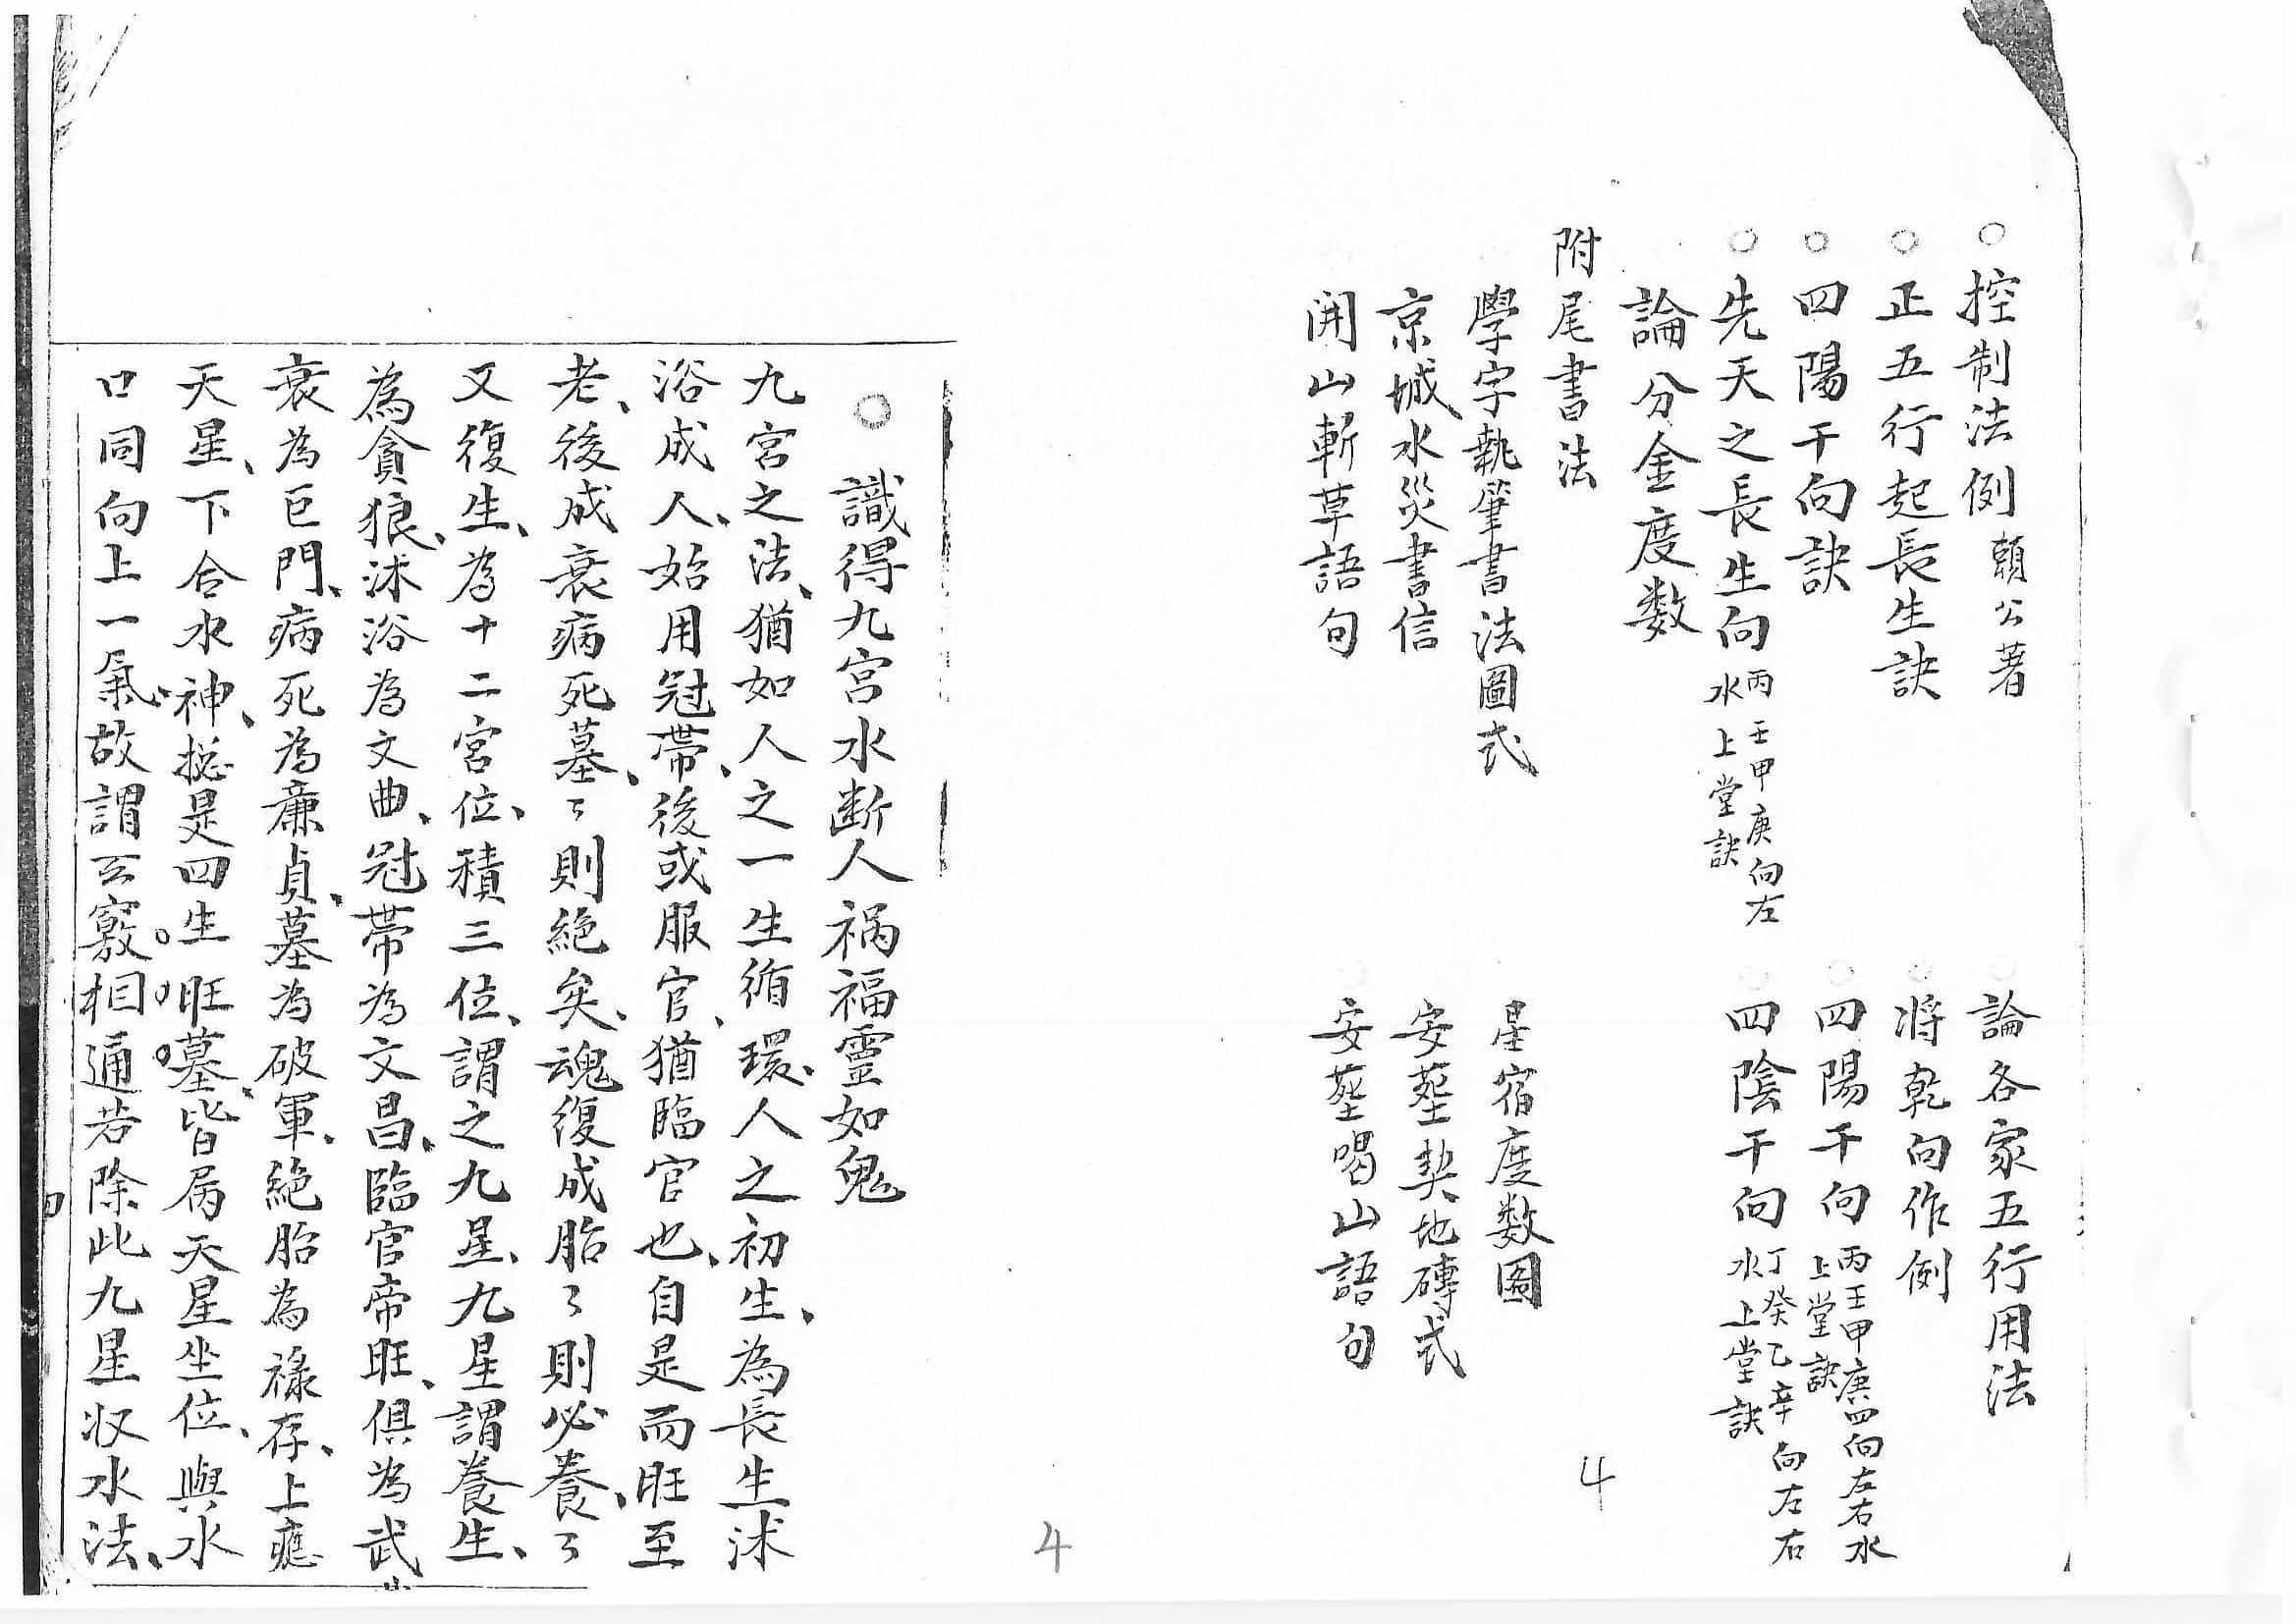 ○控制法例 賴公著
○論各家五行用法
○正五行起長生訣
○將乾向作例
○四陽干向訣
○四陽干向 丙壬甲庚四向左右水
上堂訣
○先天之長生向 丙壬甲庚向左
水上堂訣
○四陰干向 丁癸乙辛向左右
水上堂訣
論分金度数
附尾書法
學字執筆書法圖式
星宿度数图
京城水災書信
安塟契地磚式
開山斬草語句
安塟喝山語句
4
4
○識得九宮水断人禍福靈如鬼
九宮之法、猶如人之一生循環、人之初生、為長生沭
浴成人、始用冠帶、後或服官、猶臨官也、自是而旺至
老、後成衰病死墓、々則絕矣、魂復成胎々則必養、々
又復生、為十二宮位、積三位、謂之九星、九星謂養生、
為貪狼、沭浴為文曲、冠帶為文昌、臨官帝旺、俱為武
衰為巨門、病死為亷貞、墓為破軍、絕胎為祿存、上應
天星、下合水神、捴是四生旺墓、皆属天星坐位、與水
口同向上一氣、故謂玄竅相通若除此九星收水法、